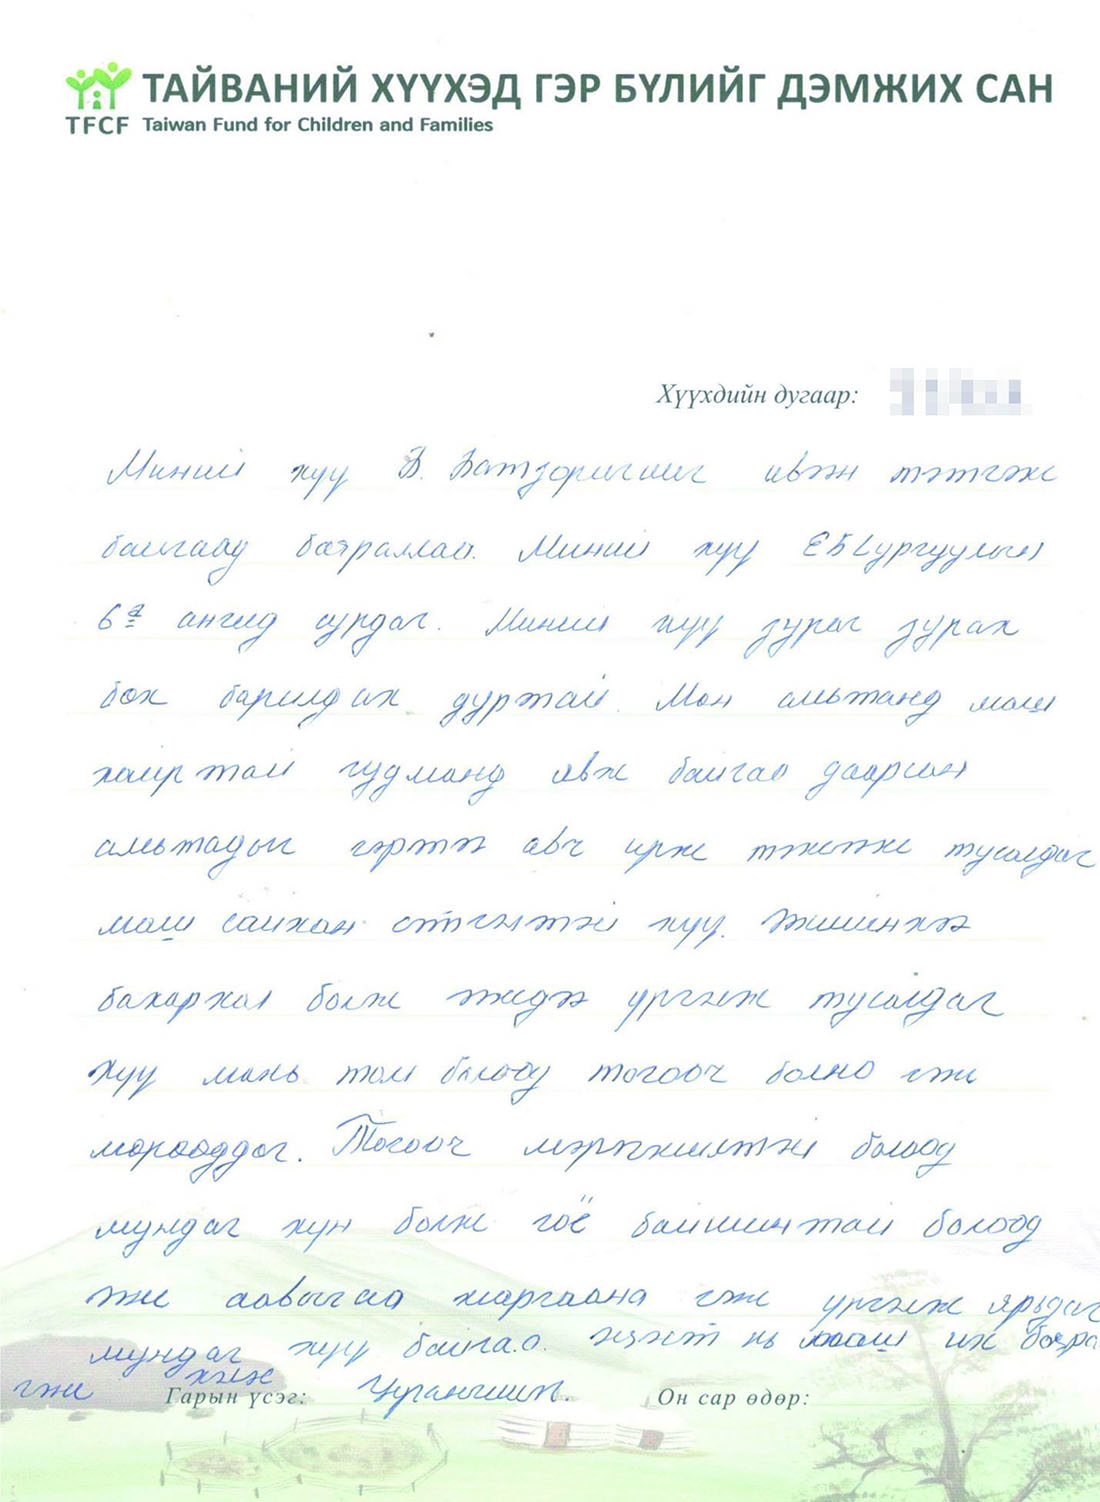 ТАЙВАНИЙ ХҮҮХЭД ГЭР БҮЛИЙГ ДЭМЖИХ САН
TFCF Taiwan Fund for Children and Families
Хүүхдийн дугаар:
Миний хүү Б. Батзоригийг ивээн тэтгэж
байгаад баяраллаа. Миний хүү ЕБСургуулын
6 ангид сурдаг. Миний хүү зураг зурах
бөх барилдах дуртай. Мөн амьтанд маш
хайртай гудманд явж байгаа даарсан
амьтадыг гэртээ авч ирж тэжээж тусалдаг
маш сайхан сэтгэлтэй хүү. Ээжийнхээ
бахархал болж ээждээ үргэлж тусалдаг
Хүү минь том болоод тогооч болно гэж
мөрөөддөг. Тогооч мэргэжилтэй болоод
мундаг хүн болж гоё байшинтай болоод
ээж аавыгаа жаргаана гэж үргэлж ярьдаг
мундаг хүү байгаа. нь маш их баярла
гэж хэлж
Гарын үсэг: Он сар өдөр: